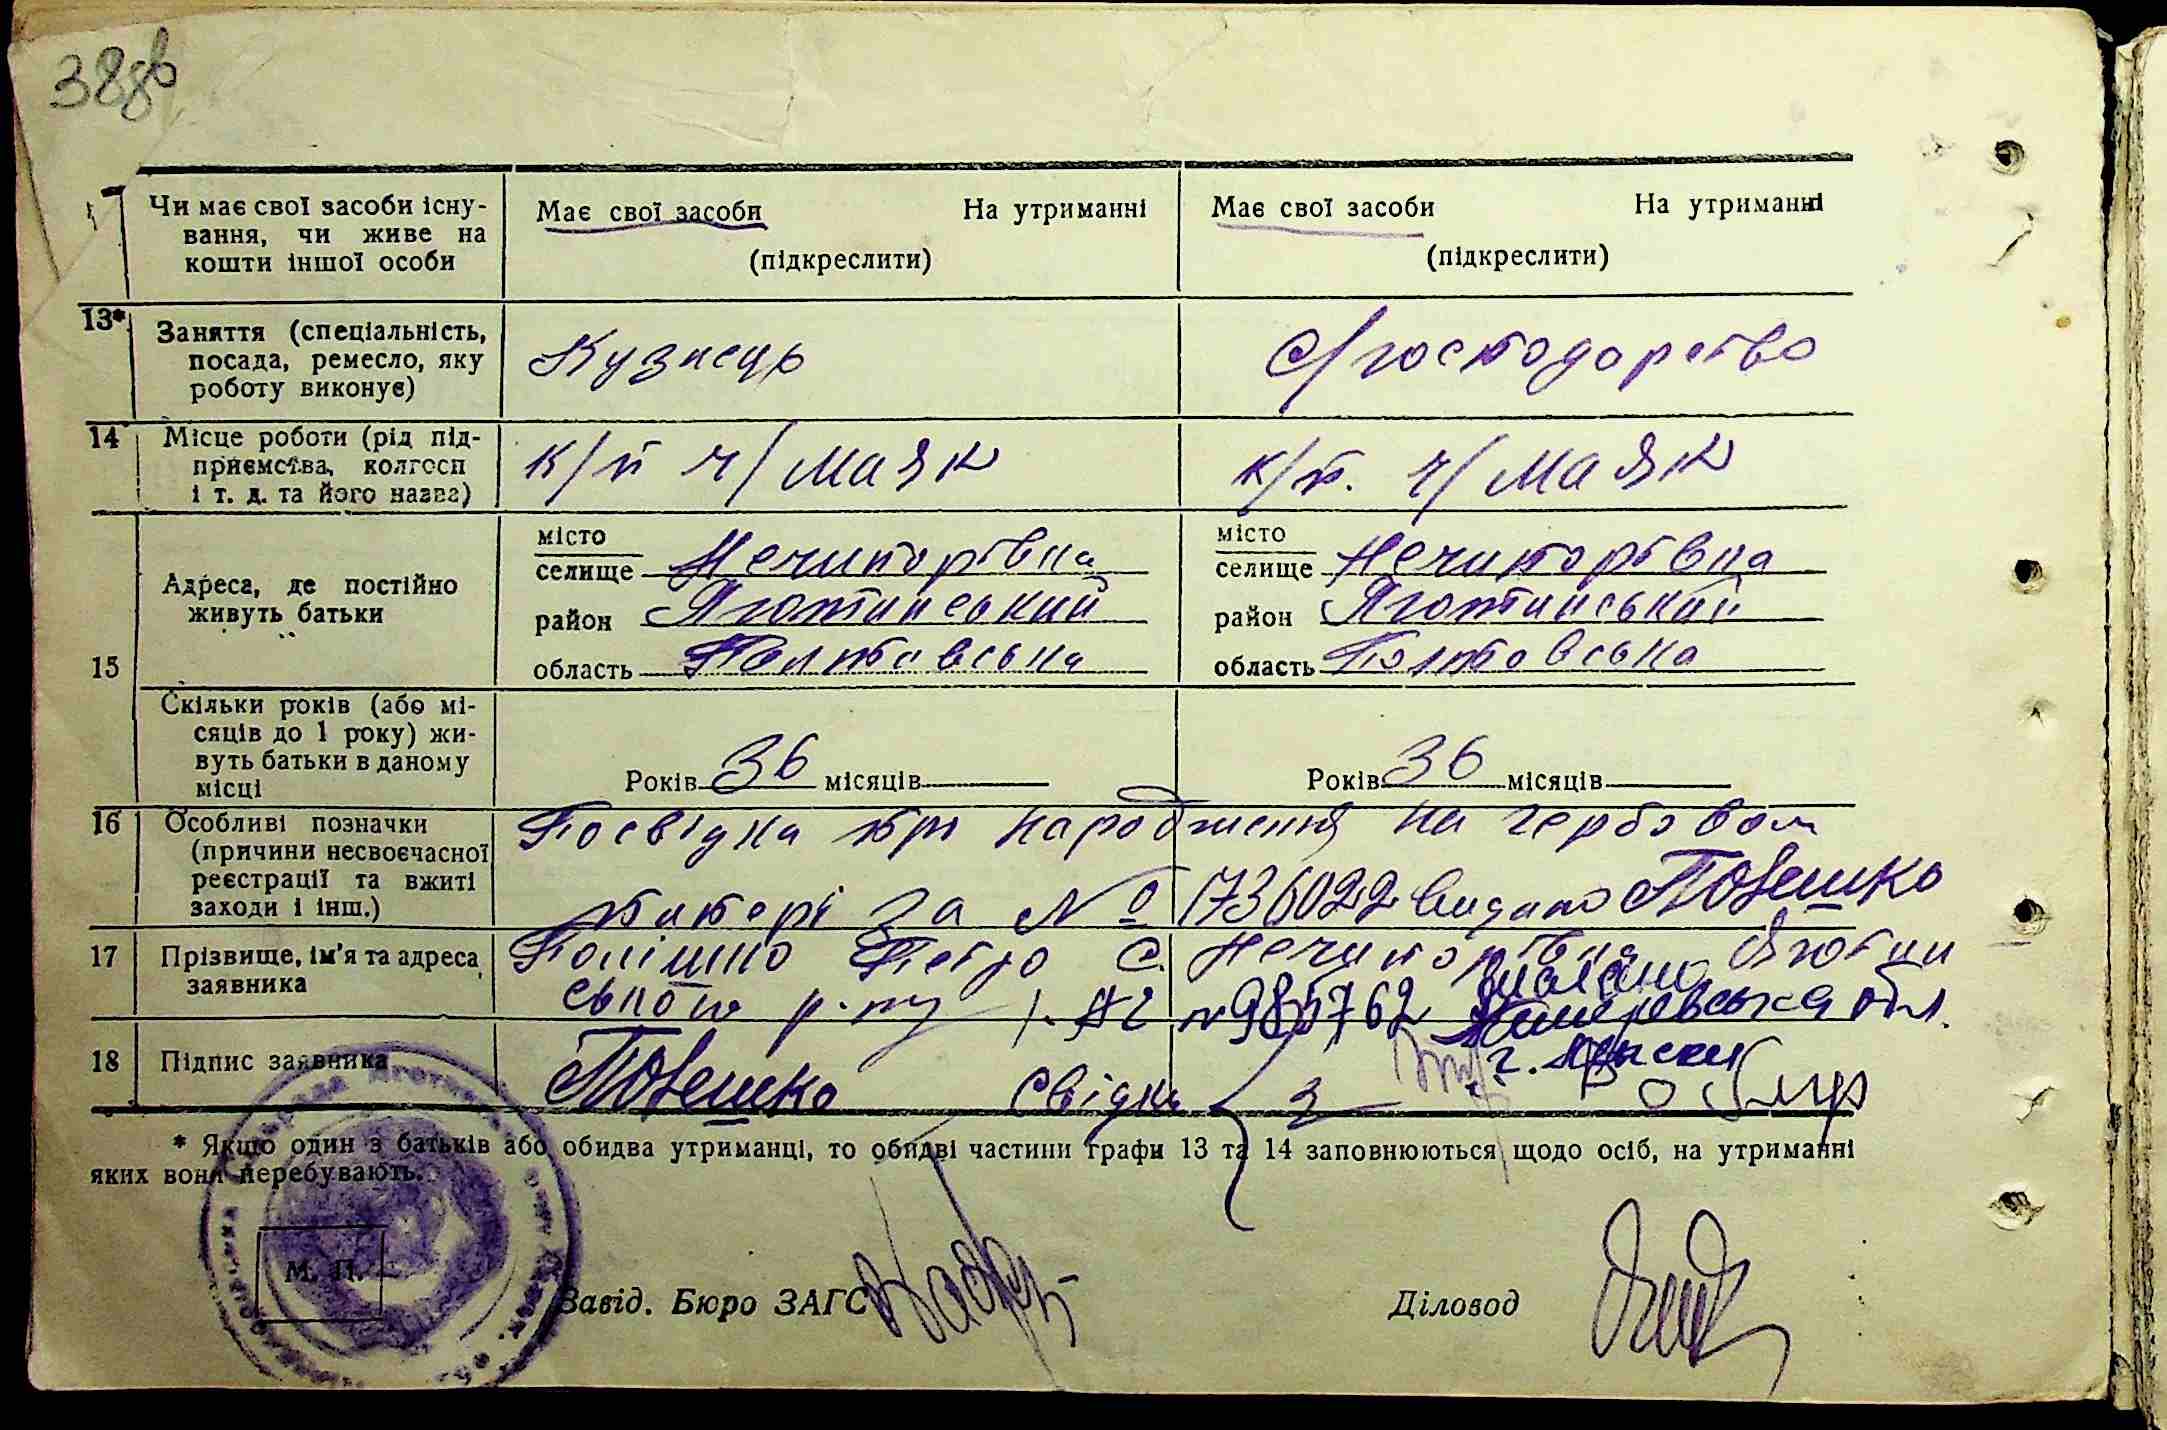 388б
Чи має свої засоби існу-
вання, чи живе на
кошти іншої особи
Має свої засоби На утриманні
(підкреслити)
Має свої засоби На утриманні
(підкреслити)
13*
Заняття (спеціальність,
посада, ремесло, яку
роботу виконує)
Кузнець
С/господорство
14
Місце роботи (рід під-
приємства, колгосп
і т. д. та його назва)
к/п ч/Маяк
к/п. ч/Маяк
15
Адреса, де постійно
живуть батьки
місто
селище Нечипорівка
район Яготинський
область Полтавська
місто
селище Нечипорівка
район Яготинський
область Полтавська
Скільки років (або мі-
сяців до 1 року) жи-
вуть батьки в даному
місці
Років 36 місяців
Років 36 місяців
16
Особливі позначки
(причини несвоєчасної
реєстрації та вжиті
заходи і інш.)
Посвідка про народження на гербовом
папері за № 1736022 видано
17
Прізвище, ім'я та адреса
заявника
Петро С. Нечипорівка Яготин
ського р-ну № 985762 обл.
18
Підпис заявника
Свідки
* Якщо один з батьків або обидва утриманці, то обидві частини графи 13 та 14 заповнюються щодо осіб, на утриманні
яких вони перебувають.
М. П.
Завід. Бюро ЗАГС
Діловод